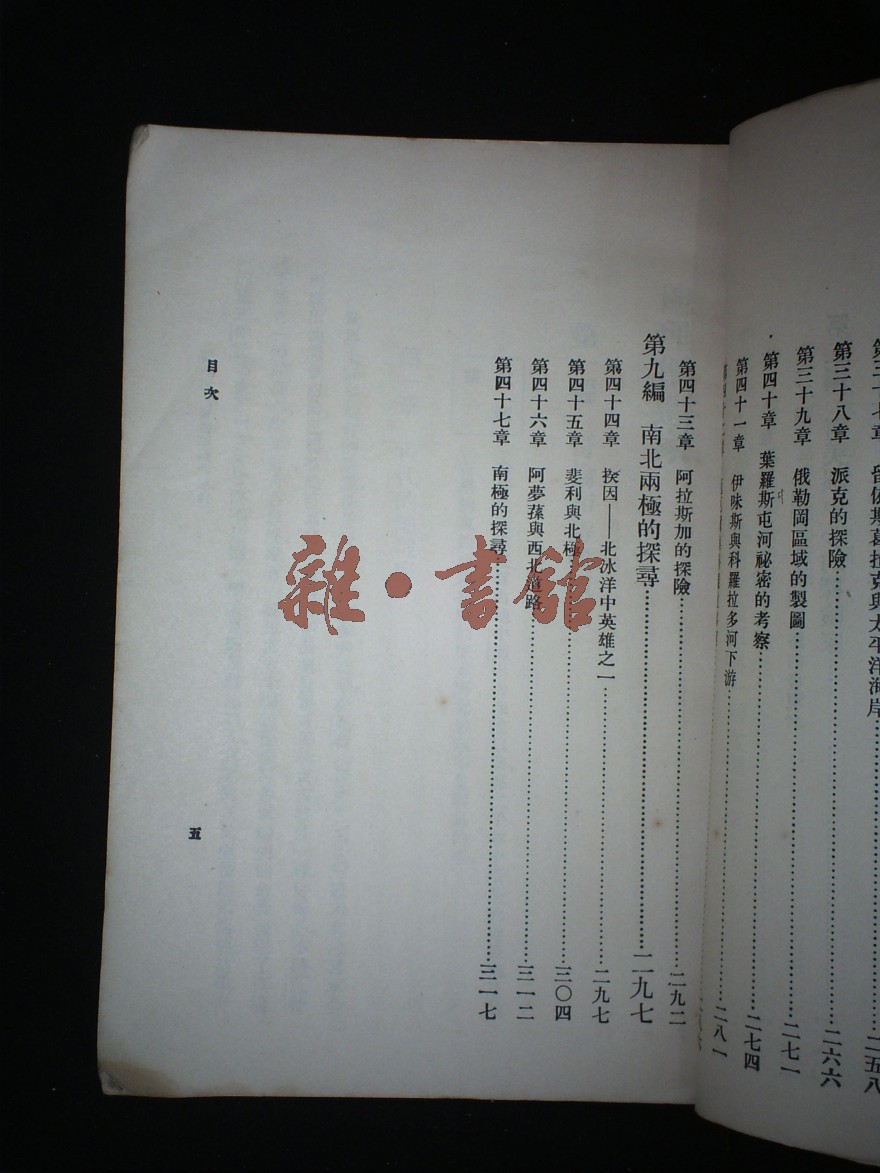 章 留依斯葛拉克與太平洋海岸……二五八
第三十八章 派克的探險……二六六
第三十九章 俄勒岡區域的製圖……二七一
第四十章 葉羅斯屯河祕密的考察……二七四
第四十一章 伊味斯與科羅拉多河下游……二八一
第四十三章 阿拉斯加的探險……二九二
第九編 南北兩極的探尋……二九七
第四十四章 揆因——北冰洋中英雄之一……二九七
第四十五章 斐利與北極……三〇四
第四十六章 阿夢蓀與西北道路……三一二
第四十七章 南極的探尋……三一七
目次
五
雜·書館